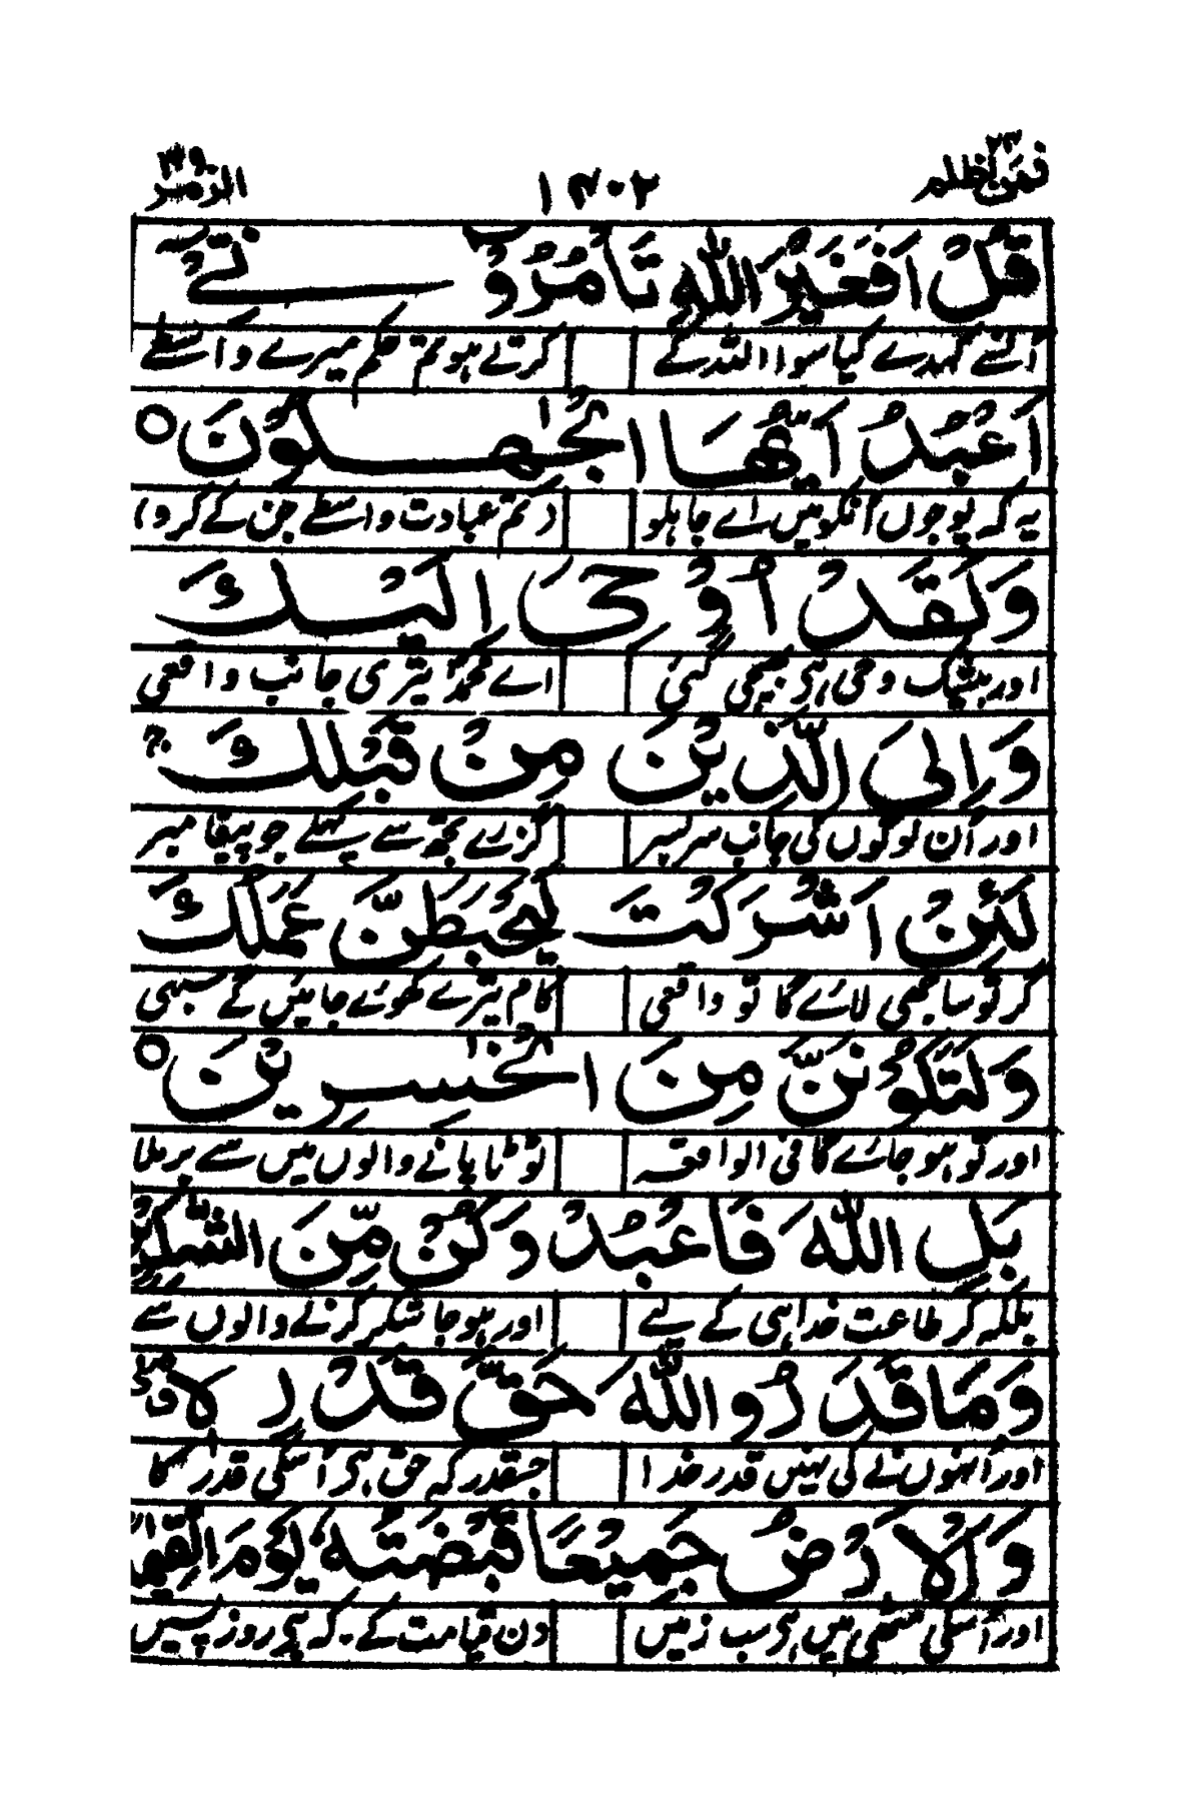 فمن اظلم ۲۴ ۱۴۰۲ الزمر ۳۹
قُلْ اَفَغَيْرَ اللّٰهِ تَاْمُرُوْٓنِّيْٓ
اُنسے کہدے کیا سوا اللہ کے کرتے ہو تم حکم میرے واسطے
اَعْبُدُ اَيُّهَا الْجٰهِلُوْنَ ○
یہ کہ پوجوں انکو میں اے جاہلو (تم عبادت واسطے جن کے کرو)
وَلَقَدْ اُوْحِيَ اِلَيْكَ
اور بیشک وحی ہی بھیجی گئی اے محمدؐ تیری جانب واقعی
وَاِلَى الَّذِيْنَ مِنْ قَبْلِكَ ۚ
اور اُن لوگوں کی جانب سربسر گزرے تجھ سے پہلے جو پیغامبر
لَئِنْ اَشْرَكْتَ لَيَحْبَطَنَّ عَمَلُكَ
گر تو ساجھی لائے گا تو واقعی کام تیرے کھوئے جائیں گے سبھی
وَلَتَكُوْنَنَّ مِنَ الْخٰسِرِيْنَ ○
اور تو ہو جائے گا فی الواقعہ ٹوٹا پانے والوں میں سے برملا
بَلِ اللّٰهَ فَاعْبُدْ وَكُنْ مِّنَ الشّٰكِرِيْنَ
بلکہ کر طاعت خدا ہی کے لیے اور ہو جا شکر کرنے والوں سے
وَمَا قَدَرُوا اللّٰهَ حَقَّ قَدْرِهٖ
اور اُنہوں نے کی نہیں قدر خدا جسقدر کہ حق ہی اسکی قدر کا
وَالْاَرْضُ جَمِيْعًا قَبْضَتُهٗ يَوْمَ الْقِيٰمَةِ
اور اُسکی مٹھی میں ہی سب زمیں دن قیامت کے کہ ہے روز پسیں